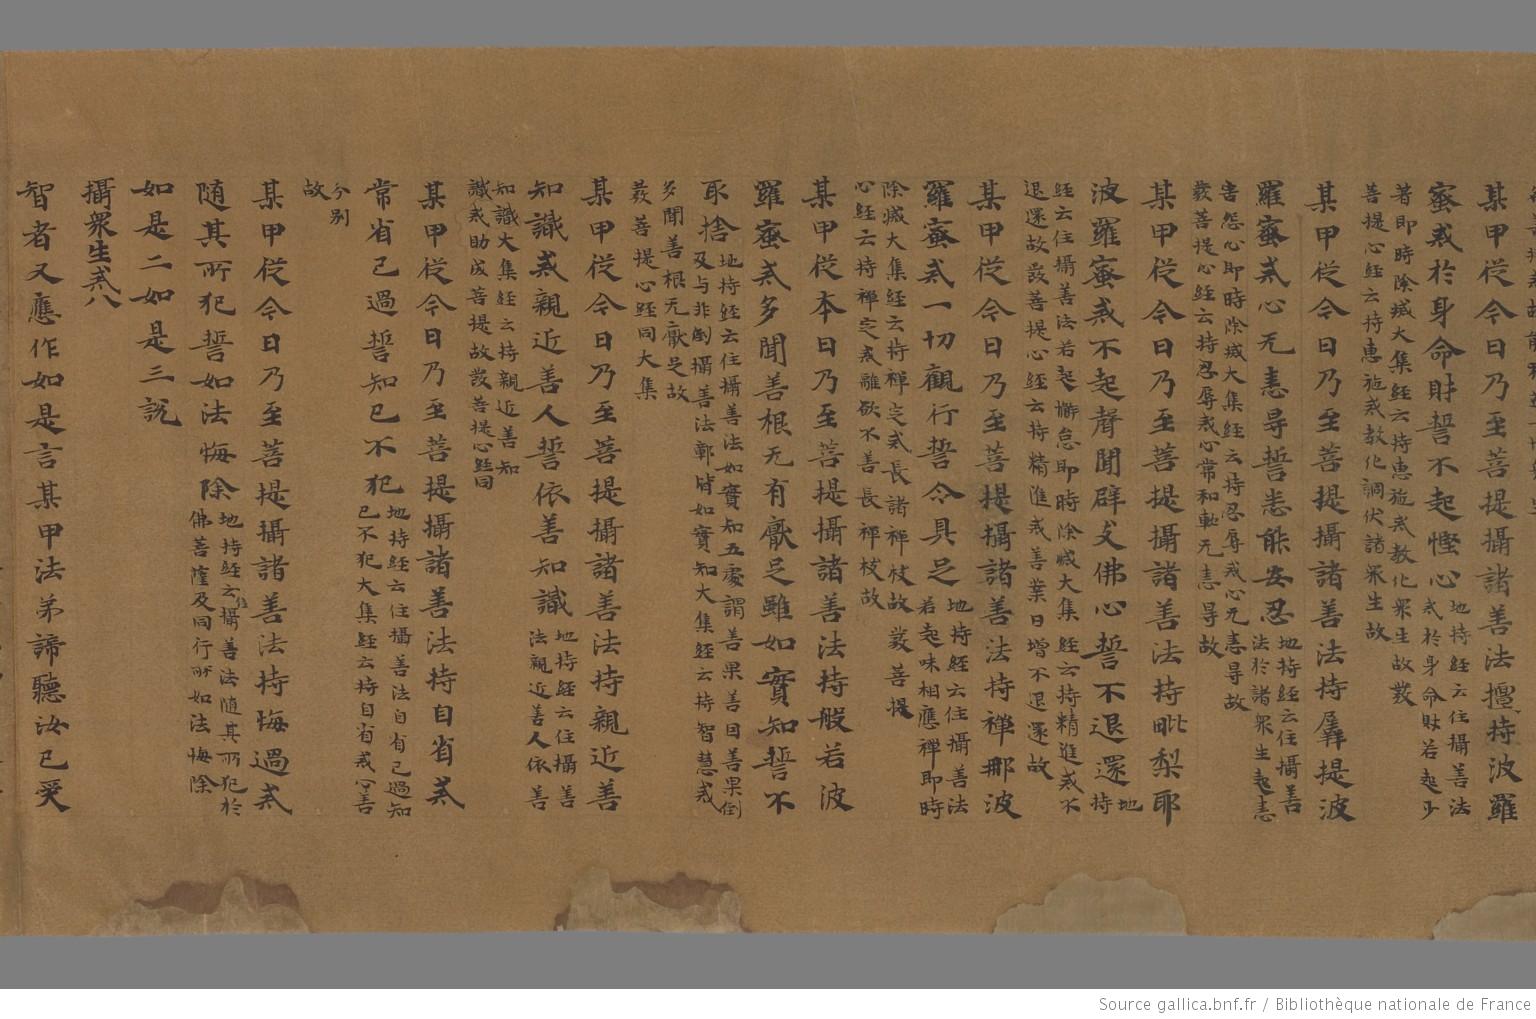 某甲從今日乃至菩提攝諸善法擅持波羅
蜜戒於身命財誓不起慳心地持經云住攝善法戒於身命財若起少
著即時除滅大集經云持惠施戒教化眾生故發
菩提心經云持惠施戒教化調伏諸眾生故
某甲從今日乃至菩提攝諸善法持羼提波
羅蜜戒心无恚㝵誓悉能安忍地持經云住攝善法於諸眾生起恚
害怨心即時除滅大集經云持忍辱戒心无恚㝵故
發菩提心經云持忍辱戒心常和軟无恚㝵故
某甲從今日乃至菩提攝諸善法持毗梨耶
波羅蜜戒不起聲聞辟支佛心誓不退還地持
經云住攝善法若起懈怠即時除滅大集經云持精進戒不
退還故發菩提心經云持精進戒善業日增不退還故
某甲從今日乃至菩提攝諸善法持禪那波
羅蜜戒一切觀行誓令具足地持經云住攝善法若起味相應禪即時
除滅大集經云持禪定戒長諸禪枝故發菩提
心經云持禪定戒離欲不善長禪枝故
某甲從本日乃至菩提攝諸善法持般若波
羅蜜戒多聞善根无有猒足雖如實知誓不
取捨地持經云住攝善法如實知五處謂善果善因善果倒
及与非倒攝善法鄣皆如實知大集經云持智慧戒
多聞善根无猒足故
發菩提心經同大集
某甲從今日乃至菩提攝諸善法持親近善
知識戒親近善人誓依善知識地持經云住攝善法親近善人依善
知識大集經云持親近善知
識戒助成菩提故發菩提心經同
某甲從今日乃至菩提攝諸善法持自省戒
常省己過誓知已不犯地持經云住攝善法自省己過知
已不犯大集經云持自省戒心善
分別
故
某甲從今日乃至菩提攝諸善法持悔過戒
隨其所犯誓如法悔除地持經云住攝善法隨其所犯於
佛菩薩及同行所如法悔除
如是二如是三說
攝眾生戒八
智者又應作如是言某甲法弟諦聽汝已受